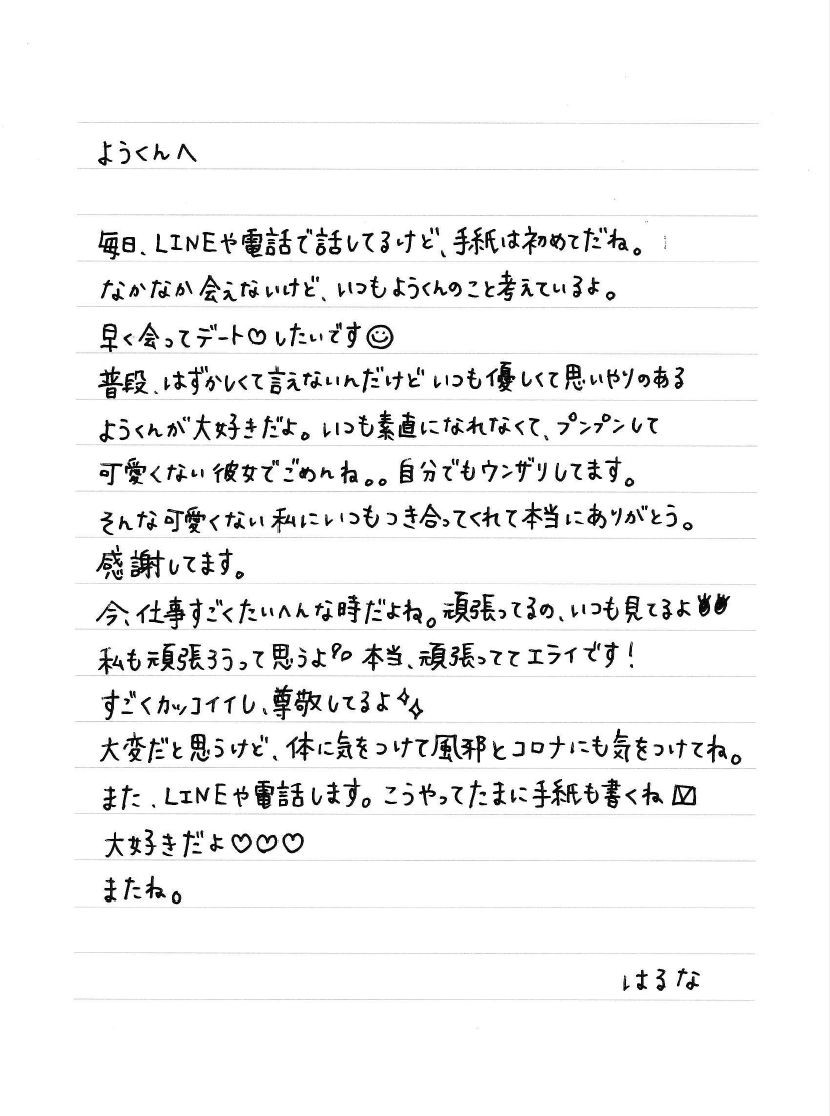 ようくんへ
毎日、LINEや電話で話してるけど、手紙は初めてだね。
なかなか会えないけど、いつもようくんのこと考えているよ。
早く会ってデート♡したいです☺
普段、はずかしくて言えないんだけどいつも優しくて思いやりのある
ようくんが大好きだよ。いつも素直になれなくて、プンプンして
可愛くない彼女でごめんね。。自分でもウンザリしてます。
そんな可愛くない私にいつもつき合ってくれて本当にありがとう。
感謝してます。
今、仕事すごくたいへんな時だよね。頑張ってるの、いつも見てるよ👀
私も頑張ろうって思うよ 本当、頑張っててエライです!
すごくカッコイイし、尊敬してるよ✧✧
大変だと思うけど、体に気をつけて風邪とコロナにも気をつけてね。
また、LINEや電話します。こうやってたまに手紙も書くね✉
大好きだよ♡♡♡
またね。
はるな